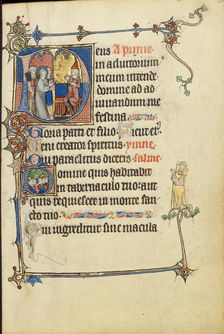 eus A prime
in adiutorium
meum intende
domine ad ad
iuuandum me
festina
Gloria patri et filio Sicut er
Veni creator spiritus ymne
Qui paraclitus diceris salme
Domine quis habitabit
in tabernaculo tuo aut
quis requiescet in monte san
cto tuo
Qui ingreditur sine macula